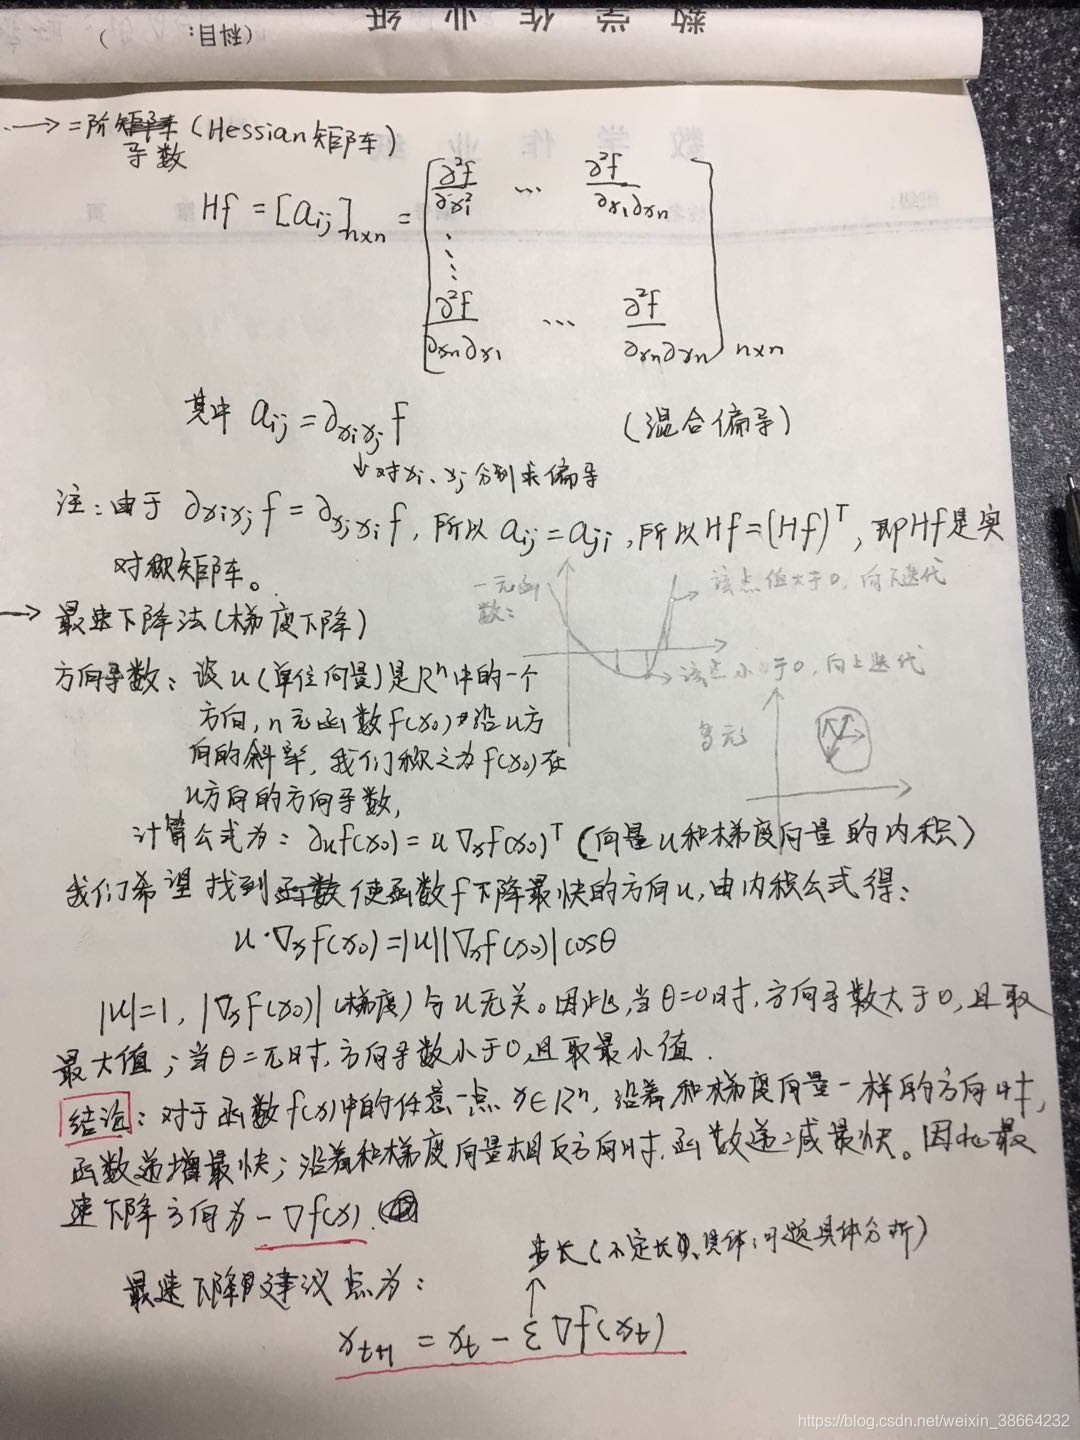 数学作业纸
(科目:        )
→ 二阶导数 (Hessian矩阵)
Hf = [aij]n×n = [ ∂²f/∂x₁² … ∂²f/∂x₁∂xn
⋮
∂²f/∂xn∂x₁ … ∂²f/∂xn∂xn ]n×n
其中 aij = ∂xixj f (混合偏导)
↓对xi、xj分别求偏导
注:由于 ∂xixj f = ∂xjxi f, 所以 aij = aji, 所以Hf = (Hf)ᵀ, 即Hf是实
对称矩阵。
一元函
数:
→ 该点值大于0, 向下迭代
→ 该点小于0, 向上迭代
多元
→ 最速下降法(梯度下降)
方向导数: 设u(单位向量)是Rⁿ中的一个
方向, n元函数f(x₀)沿u方
向的斜率, 我们称之为f(x₀)在
u方向的方向导数,
计算公式为: ∂uf(x₀) = u ∇xf(x₀)ᵀ (向量u和梯度向量的内积)
我们希望找到使函数f下降最快的方向u, 由内积公式得:
u·∇xf(x₀) = |u||∇xf(x₀)|cosθ
|u|=1, |∇xf(x₀)| (梯度) 与u无关。因此, 当θ=0时, 方向导数大于0, 且取
最大值; 当θ=π时, 方向导数小于0, 且取最小值.
结论: 对于函数f(x)中的任意一点x∈Rⁿ, 沿着和梯度向量一样的方向时,
函数递增最快; 沿着和梯度向量相反方向时, 函数递减最快。因此最
速下降方向为 -∇f(x).
步长(不定长, 具体问题具体分析)
↑
最速下降建议点为:
xt+1 = xt - ε∇f(xt)
https://blog.csdn.net/weixin_38664232